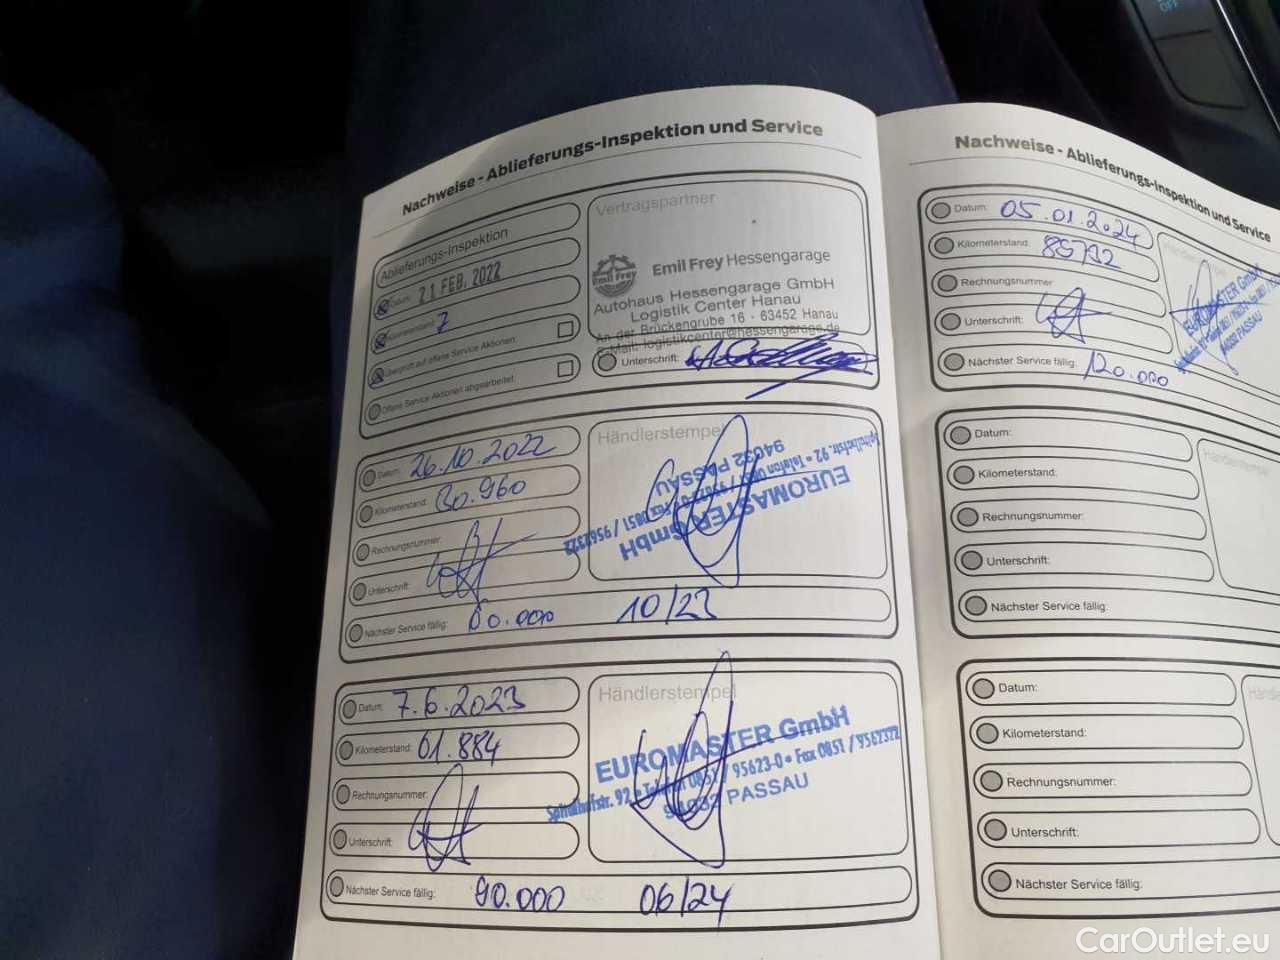 OFF
Nachweise - Ablieferungs-Inspektion und Service
Ablieferungs-Inspektion
Datum: 21 FEB. 2022
Kilometerstand: 7
Überprüft auf offene Service Aktionen:
Offene Service Aktionen abgearbeitet:
Vertragspartner
Emil Frey
Emil Frey Hessengarage
Autohaus Hessengarage GmbH
Logistik Center Hanau
An der Brückengrube 16 · 63452 Hanau
E-Mail: logistikcenter@hessengarage.de
Unterschrift:
Datum: 26.10.2022
Kilometerstand: 30.960
Rechnungsnummer:
Unterschrift:
Nächster Service fällig: 60.000 10/23
Händlerstempel
EUROMASTER GmbH
Spitalhofstr. 92 • Telefon 0851 / 95623-0 • Fax 0851 / 9562322
94032 PASSAU
Datum: 7.6.2023
Kilometerstand: 61.884
Rechnungsnummer:
Unterschrift:
Nächster Service fällig: 90.000 06/24
Händlerstempel
EUROMASTER GmbH
Spitalhofstr. 92 • Telefon 0851 / 95623-0 • Fax 0851 / 9562322
94032 PASSAU
Nachweise - Ablieferungs-Inspektion und Service
Datum: 05.01.2024
Kilometerstand: 85732
Rechnungsnummer
Unterschrift:
Nächster Service fällig: 120.000
EUROMASTER GmbH
94032 PASSAU
Datum:
Kilometerstand:
Rechnungsnummer:
Unterschrift:
Nächster Service fällig:
Händlerstempel
Datum:
Kilometerstand:
Rechnungsnummer:
Unterschrift:
Nächster Service fällig:
CarOutlet.eu